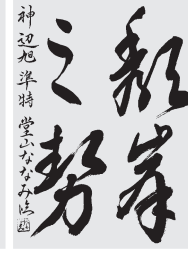 頽峯
之勢
神辺旭 準特 堂山ななみ臨